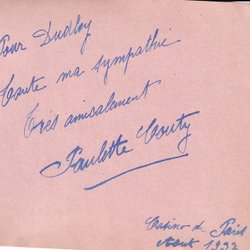 Pour Dudley
Toute ma sympathie
Très amicalement
Paulette Couty
Casino de Paris
Août 1933